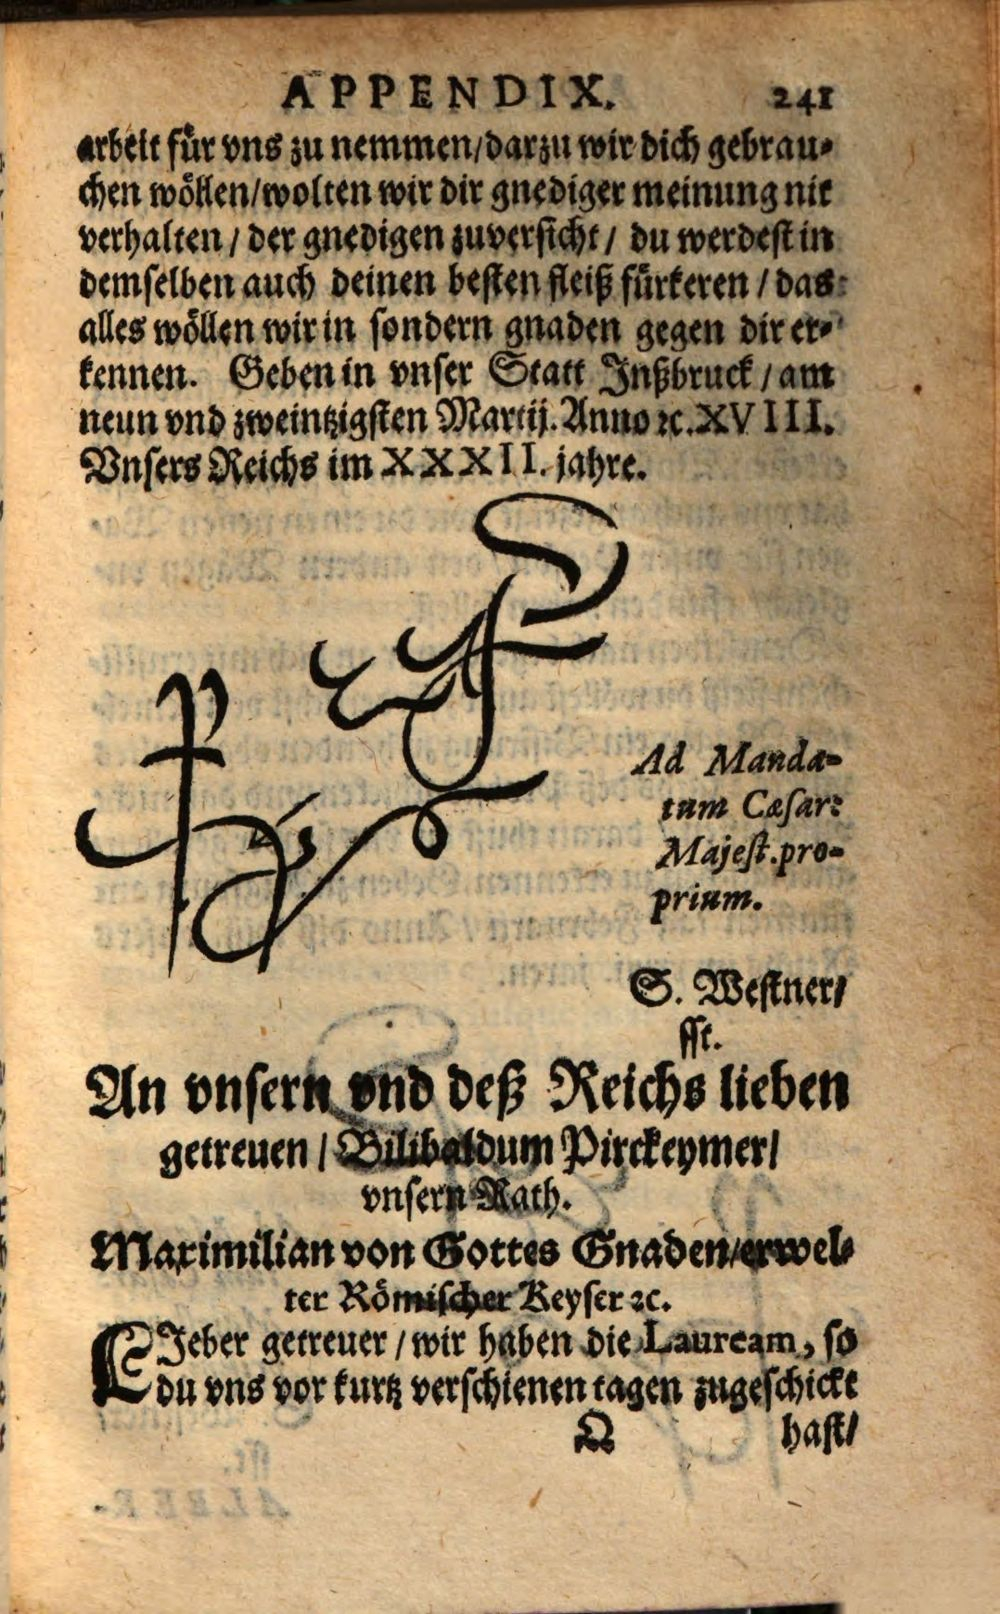 APPENDIX. 241
arbeit für vns zu nemmen/darzu wir dich gebrau-
chen wöllen/wolten wir dir gnediger meinung nit
verhalten / der gnedigen zuversicht / du werdest in
demselben auch deinen besten fleiß fürkeren / das
alles wöllen wir in sondern gnaden gegen dir er-
kennen. Geben in vnser Statt Jnßbruck / am
neun vnd zweintzigsten Martij. Anno ꝛc. XVIII.
Vnsers Reichs im XXXII. jahre.
Ad Manda-
tum Cæsar:
Majest. pro-
prium.
S. Westner/
sst.
An vnsern vnd deß Reichs lieben
getreuen / Bilibaldum Pirckeymer/
vnsern Rath.
Maximilian von Gottes Gnaden/erwel-
ter Römischer Keyser ꝛc.
LJeber getreuer / wir haben die Lauream, so
du vns vor kurtz verschienen tagen zugeschickt
Q hast/